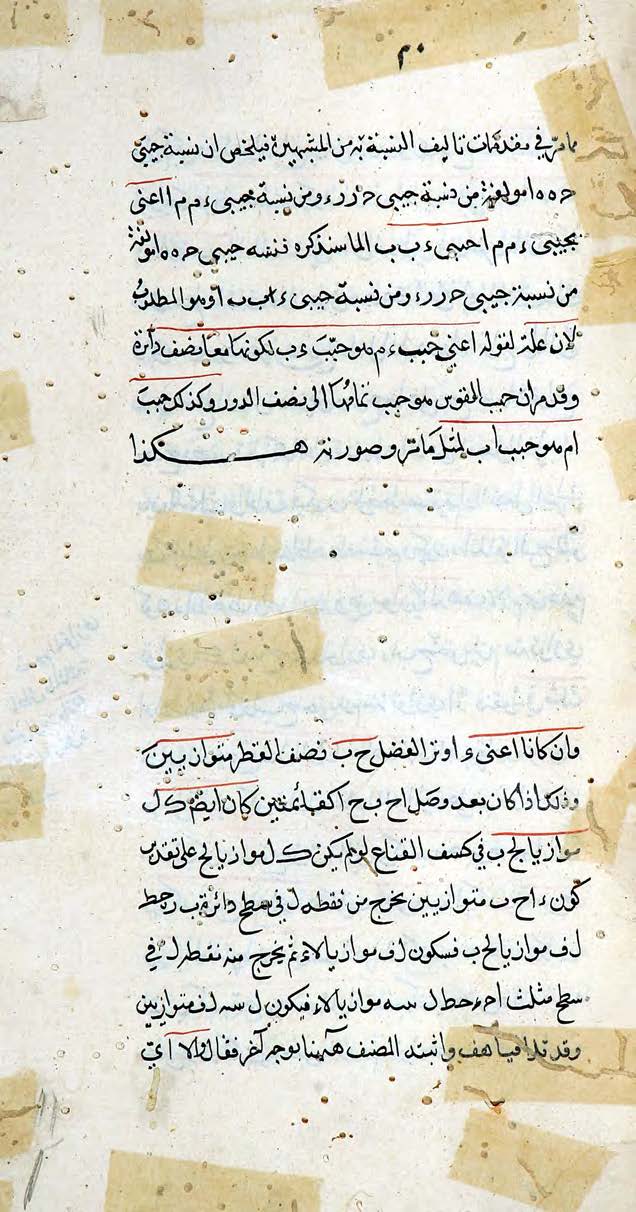 ٢٠
مامر في مقدمات تاليف النسبة من المشهين فيلخص ان نسبة جيبي
ح ه ه ا مولفة من نسبة جيبي ح ر ر ء ومن نسبة جيبي ء م م ا اعني
بجيبي ء م م ا جيبي ء ب ب ا لما سنذكره فنسبه جيبي ح ه ه ا مولفة
من نسبة جيبي ح ر ر ء ومن نسبة جيبي ء ب ب ا وهو المطلوب
لان علة لقوله اعني جيب ء م هو جيب ء ب لكونهما معا نصف دائرة
وقد مر ان جيب القوس هو جيب تمامها الى نصف الدور وكذلك جيب
ام هو جيب اب لمثل ما مر وصورته هكذا
وان كانا اعني ء ا وتر الفضل ح ب ونصف القطر متوازيين
وذلك اذا كان بعد وصل اح ب ح ا كقائمتين كان ايضا ك ل
موازيا لح ب في كسف القناع لو لم يكن ك ل موازيا لح على تقدير
كون ء ا ح ب متوازيين يخرج من نقطه ل في سطح دائرة ب ر ح خط
ل ف موازيا لح ب فسكون ل ف موازيا لاء ثم يخرج من نقطة ل في
سطح مثلث ا ح ء خط ل سه موازيا لاء فيكون ل سه ل ف متوازيين
وقد تلاقيا هف واثبته المصنف ههنا بوجه آخر فقال والا اي